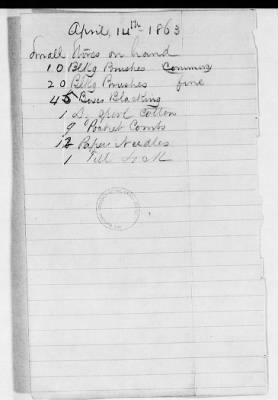 April, 14th 1863
Small Stores on hand
10 Blkg Brushes Common
20 Blkg Brushes fine
45 Boxes Blacking
1 Spool Cotton
9 Pocket Combs
12 Paper Needles
1 Till Lock